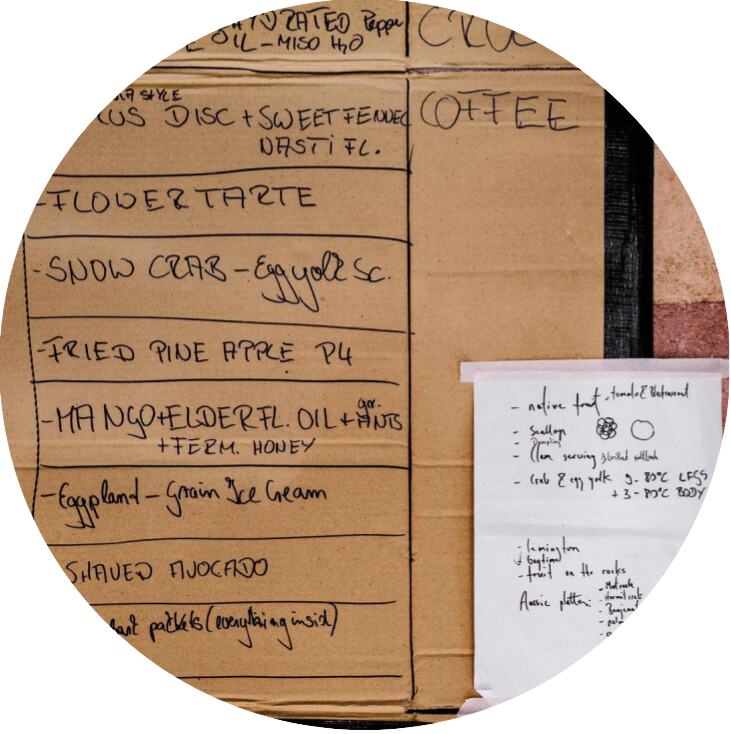 RATED Pepper
OIL - MISO H2O
STYLE
DISC + SWEET FENNEL
NASTI FL.
COFFEE
- FLOWER TARTE
- SNOW CRAB - Egg yolk Sc.
- FRIED PINE APPLE P4
- MANGO + ELDERFL. OIL + gr. ANTS
+ FERM. HONEY
- Eggpland - Grain Ice Cream
SHAVED AVOCADO
packets (everything inside)
- native fruit, tomato &
- Scallop
- Dumpling
- Clam serving 3
- Crab & egg yolk 9 - 80°C LEGS
+ 3 - 80°C BODY
- lamington
- fruit on the rocks
Aussie platter:
- Mat
- Hermit crab